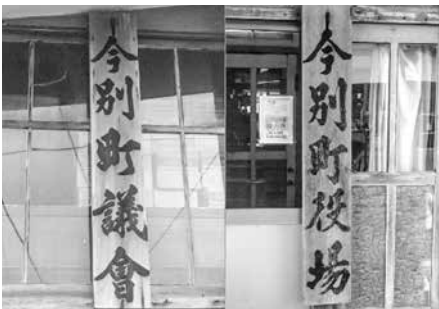 今別町議會
今別町役場